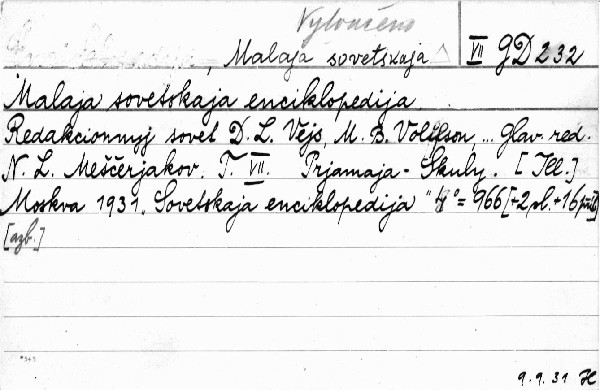 Vyloučeno
, Malaja sovetskaja VII GD 232
Malaja sovetskaja enciklopedija.
Redakcionnyj sovet D. L. Vejs, M. B. Vol'fson, ... Glav. red.
N. L. Meščerjakov. T. VII. Prjamaja - Skuly. [Ill.]
Moskva 1931. Sovetskaja enciklopedija 4° = 966 [+2 pl. +16 příl.]
[azb.]
9. 9. 31 H